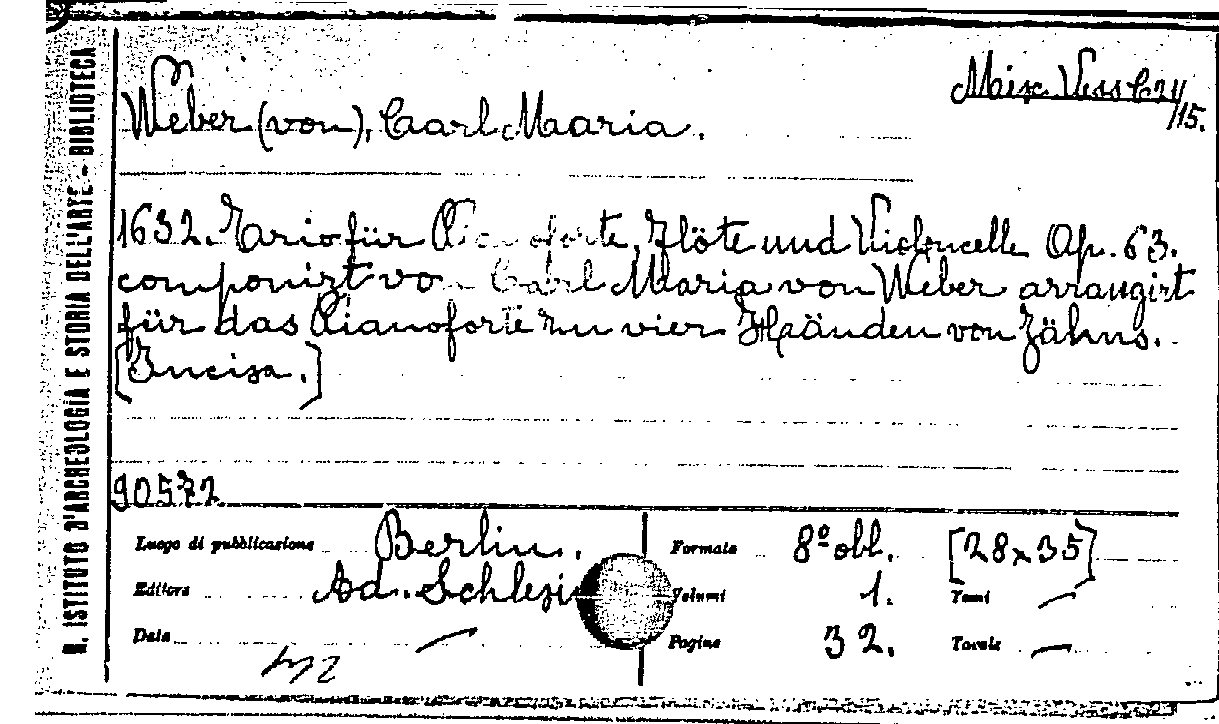 R. ISTITUTO D'ARCHEOLOGIA E STORIA DELL'ARTE - BIBLIOTECA
Misc. Vess. C 21/15.
Weber (von), Carl Maria.
1632. Trio für Pianoforte, Flöte und Violoncelle Op. 63.
componirt von Carl Maria von Weber arrangirt
für das Pianoforte zu vier Haänden von Jähns.
[Incisa.]
90572
Luogo di pubblicazione Berlin. Formato 8º obl. [28x35]
Editore Ad. Schlesi Volumi 1. Tomi —
Data — Pagine 32. Tavole —